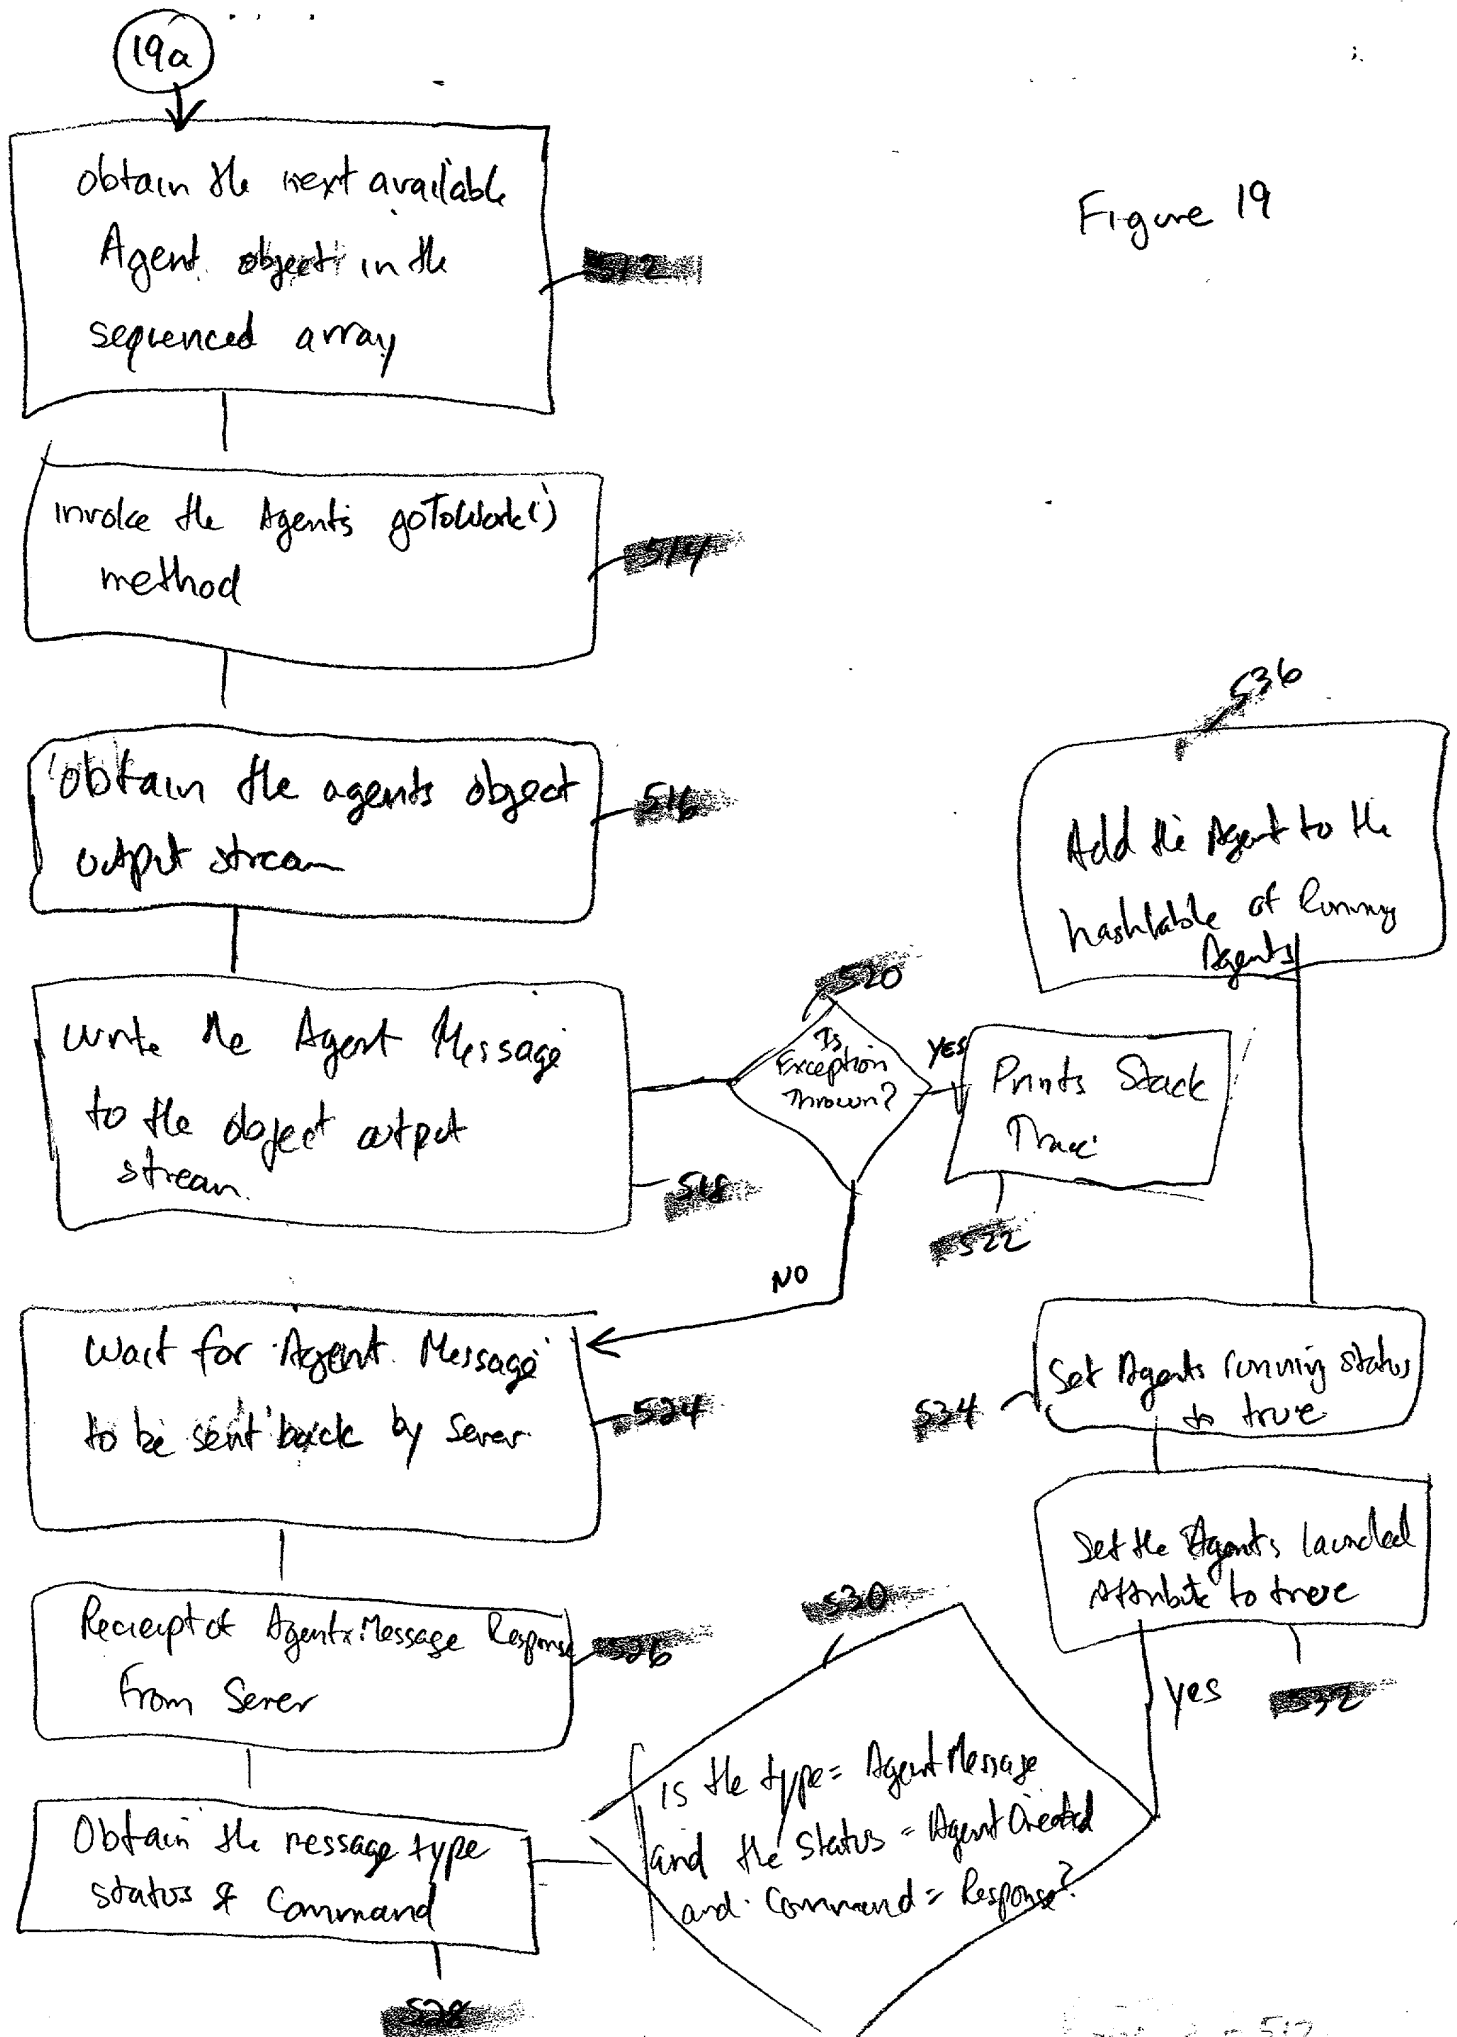 19a
Figure 19
obtain the next available
Agent object in the
sequenced array
512
invoke the Agents goToWork()
method
514
obtain the agents object
output stream
516
write the Agent Message
to the object output
stream.
518
520
Is
Exception
Thrown?
YES
NO
Prints Stack
Trace
522
Wait for Agent Message
to be sent back by Server
524
Recieipt of Agent Message Response
from Server
526
Obtain the message type
status & Command
528
530
is the type = Agent Message
and the status = Agent Created
and Command = Response?
yes
Set the Agents launched
Attribute to true
532
Set Agents running status
to true
534
536
Add the Agent to the
hashtable of Running
Agents